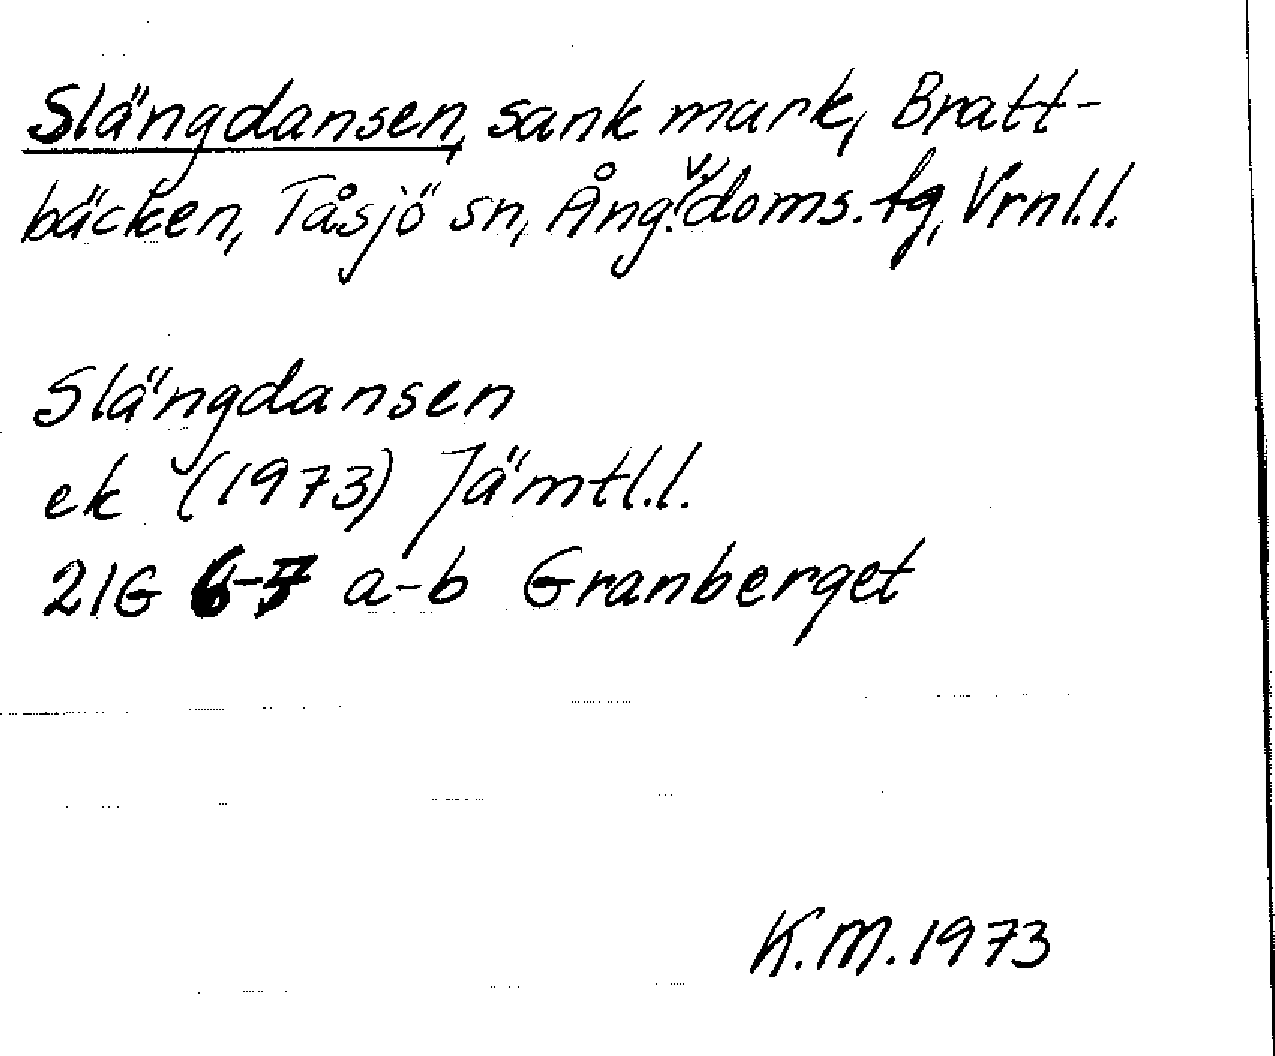 Slängdansen, sank mark, Bratt-
bäcken, Tåsjö sn, Ång. v. doms. tg, Vrnl.l.
Slängdansen
ek (1973) Jämtl.l.
21G 6-7 a-b Granberget
K.M. 1973